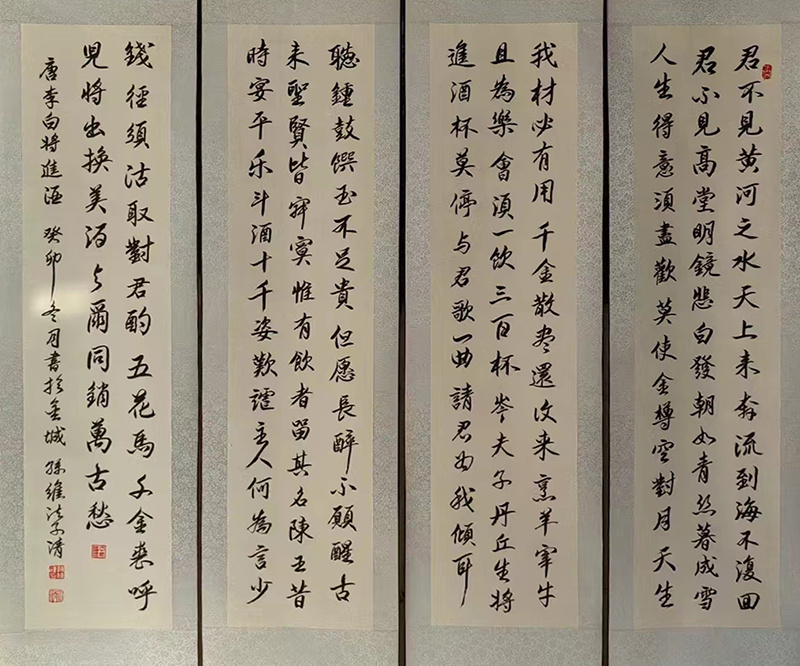 君不見黄河之水天上来奔流到海不復回
君不見高堂明鏡悲白發朝如青丝暮成雪
人生得意須盡歡莫使金樽空對月天生
我材必有用千金散盡還復来烹羊宰牛
且為樂會須一飲三百杯岑夫子丹丘生將
進酒杯莫停与君歌一曲請君为我傾耳
聽鍾鼓饌玉不足貴但愿長醉不願醒古
来聖賢皆寂寞惟有飲者留其名陳王昔
時宴平乐斗酒十千姿歡謔主人何為言少
錢徑須沽取對君酌五花馬千金裘呼
兒將出換美酒与爾同銷萬古愁
唐李白將進酒 癸卯冬月書於金城 孫維